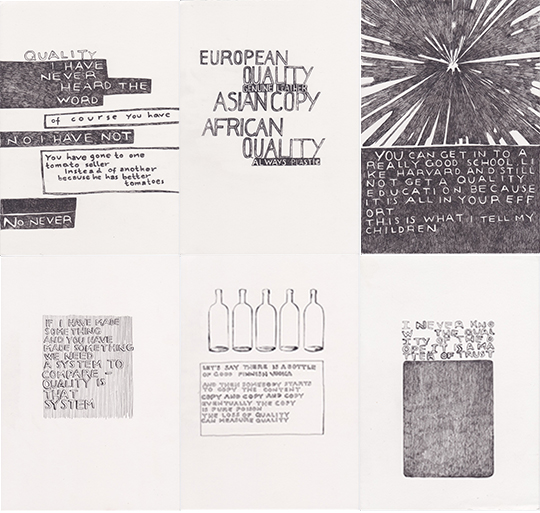 QUALITY
I HAVE
NEVER
HEARD THE
WORD
of course you have
NO I HAVE NOT
You have gone to one
tomato seller
instead of another
because he has better
tomatoes
NO NEVER
EUROPEAN
QUALITY
GENUINE LEATHER
ASIAN COPY
AFRICAN
QUALITY
ALWAYS PLASTIC
YOU CAN GET IN TO A
REALLY GOOD SCHOOL LI
KE HARVARD AND STILL
NOT GET A QUALITY
EDUCATION BECAUSE
IT IS ALL IN YOUR EFF
ORT
THIS IS WHAT I TELL MY
CHILDREN
IF I HAVE MADE
SOMETHING
AND YOU HAVE
MADE SOMETHING
WE NEED
A SYSTEM TO
COMPARE -
QUALITY IS
THAT
SYSTEM
LET'S SAY THERE IS A BOTTLE
OF GOOD FINNISH VODKA
AND THEN SOMEBODY STARTS
TO COPY THE CONTENT
COPY AND COPY AND COPY
EVENTUALLY THE COPY
IS PURE POISON
THE LOSS OF QUALITY
CAN MEASURE QUALITY
I NEVER KNO
W THE QUAL
ITY OF THE
IT IS A MA
TTER OF TRUST